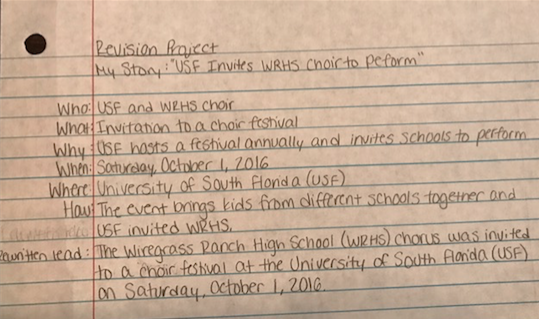 Revision Project
My Story: "USF Invites WRHS choir to Peform"
Who: USF and WRHS choir
What: Invitation to a choir festival
Why: USF hosts a festival annually and invites schools to perform
When: Saturday, October 1, 2016
Where: University of South Florida (USF)
How: The event brings kids from different schools together and
USF invited WRHS.
Rewritten lead: The Wiregrass Ranch High School (WRHS) chorus was invited
to a choir festival at the University of South Florida (USF)
on Saturday, October 1, 2016.